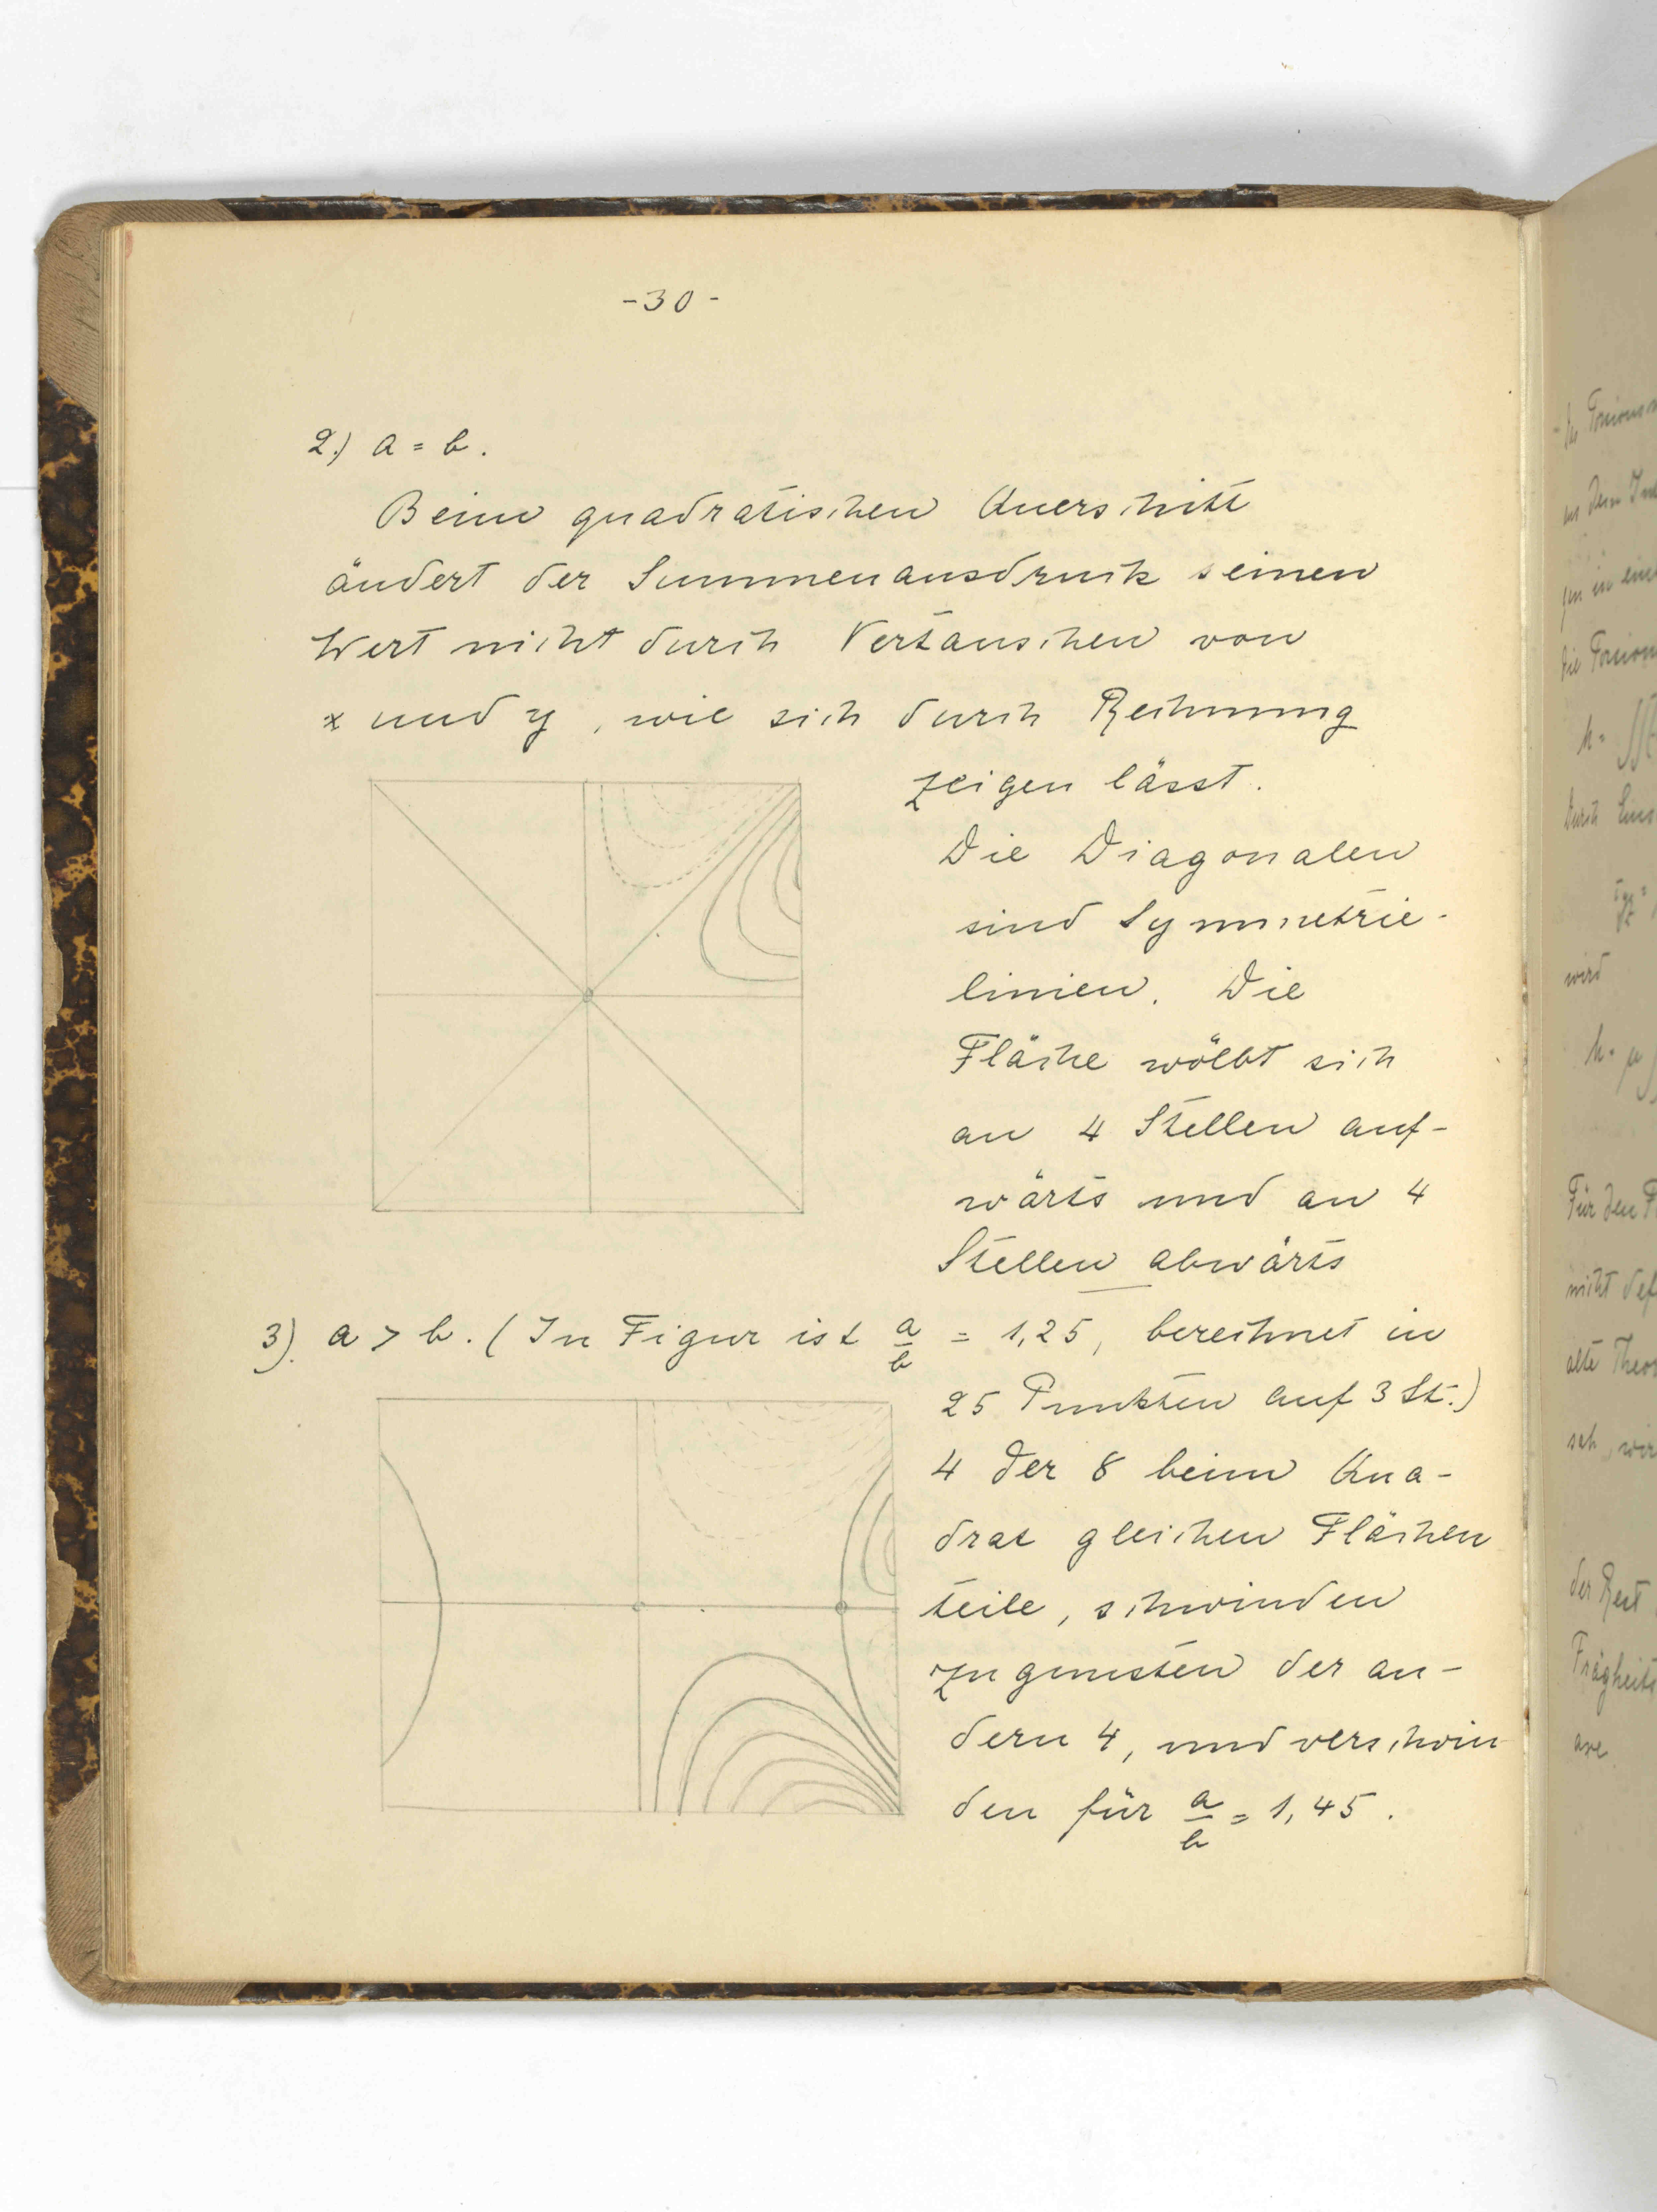 -30-
2.) a = b.
Beim quadratischen Querschnitt
ändert der Summenausdruck seinen
Wert nicht durch Vertauschen von
x und y, wie sich durch Rechnung
zeigen lässt.
Die Diagonalen
sind Symmetrie-
linien. Die
Fläche wölbt sich
an 4 Stellen auf-
wärts und an 4
Stellen abwärts
3). a > b. (In Figur ist a/b = 1,25, berechnet in
25 Punkten auf 3 St.)
4 der 8 beim Qua-
drat gleichen Flächen
teile, schwinden
zugunsten der an-
dern 4, und verschwin
den für a/b = 1,45.
in eine
die Torsion
h =
Durch Eins
wird
h = μ
Für den F
nicht def
alte Theo
seh, wir
der Rest
Trägheits
axe.